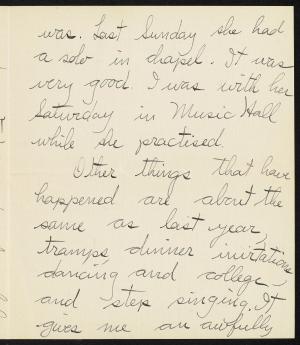 was. Last Sunday she had
a solo in chapel. It was
very good. I was with her
Saturday in Music Hall
while she practised.
Other things that have
happened are about the
same as last year,
tramps, dinner invitations
dancing and college,
and step singing. It
gives me an awfully